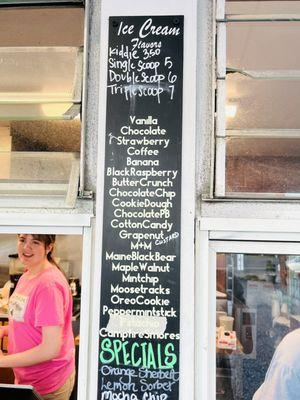 Ice Cream
Flavors
Kiddie 3.50
Single Scoop 5
Double Scoop 6
Triple Scoop 7
Vanilla
Chocolate
Strawberry
Coffee
Banana
BlackRaspberry
ButterCrunch
ChocolateChip
CookieDough
ChocolatePB
CottonCandy
Grapenut CUSTARD
M+M
MaineBlackBear
MapleWalnut
Mintchip
Moosetracks
OreoCookie
PeppermintStick
Pistachio
CampfireSmores
SPECIALS
Orange Sherbert
Lemon Sorbet
Mocha Chip